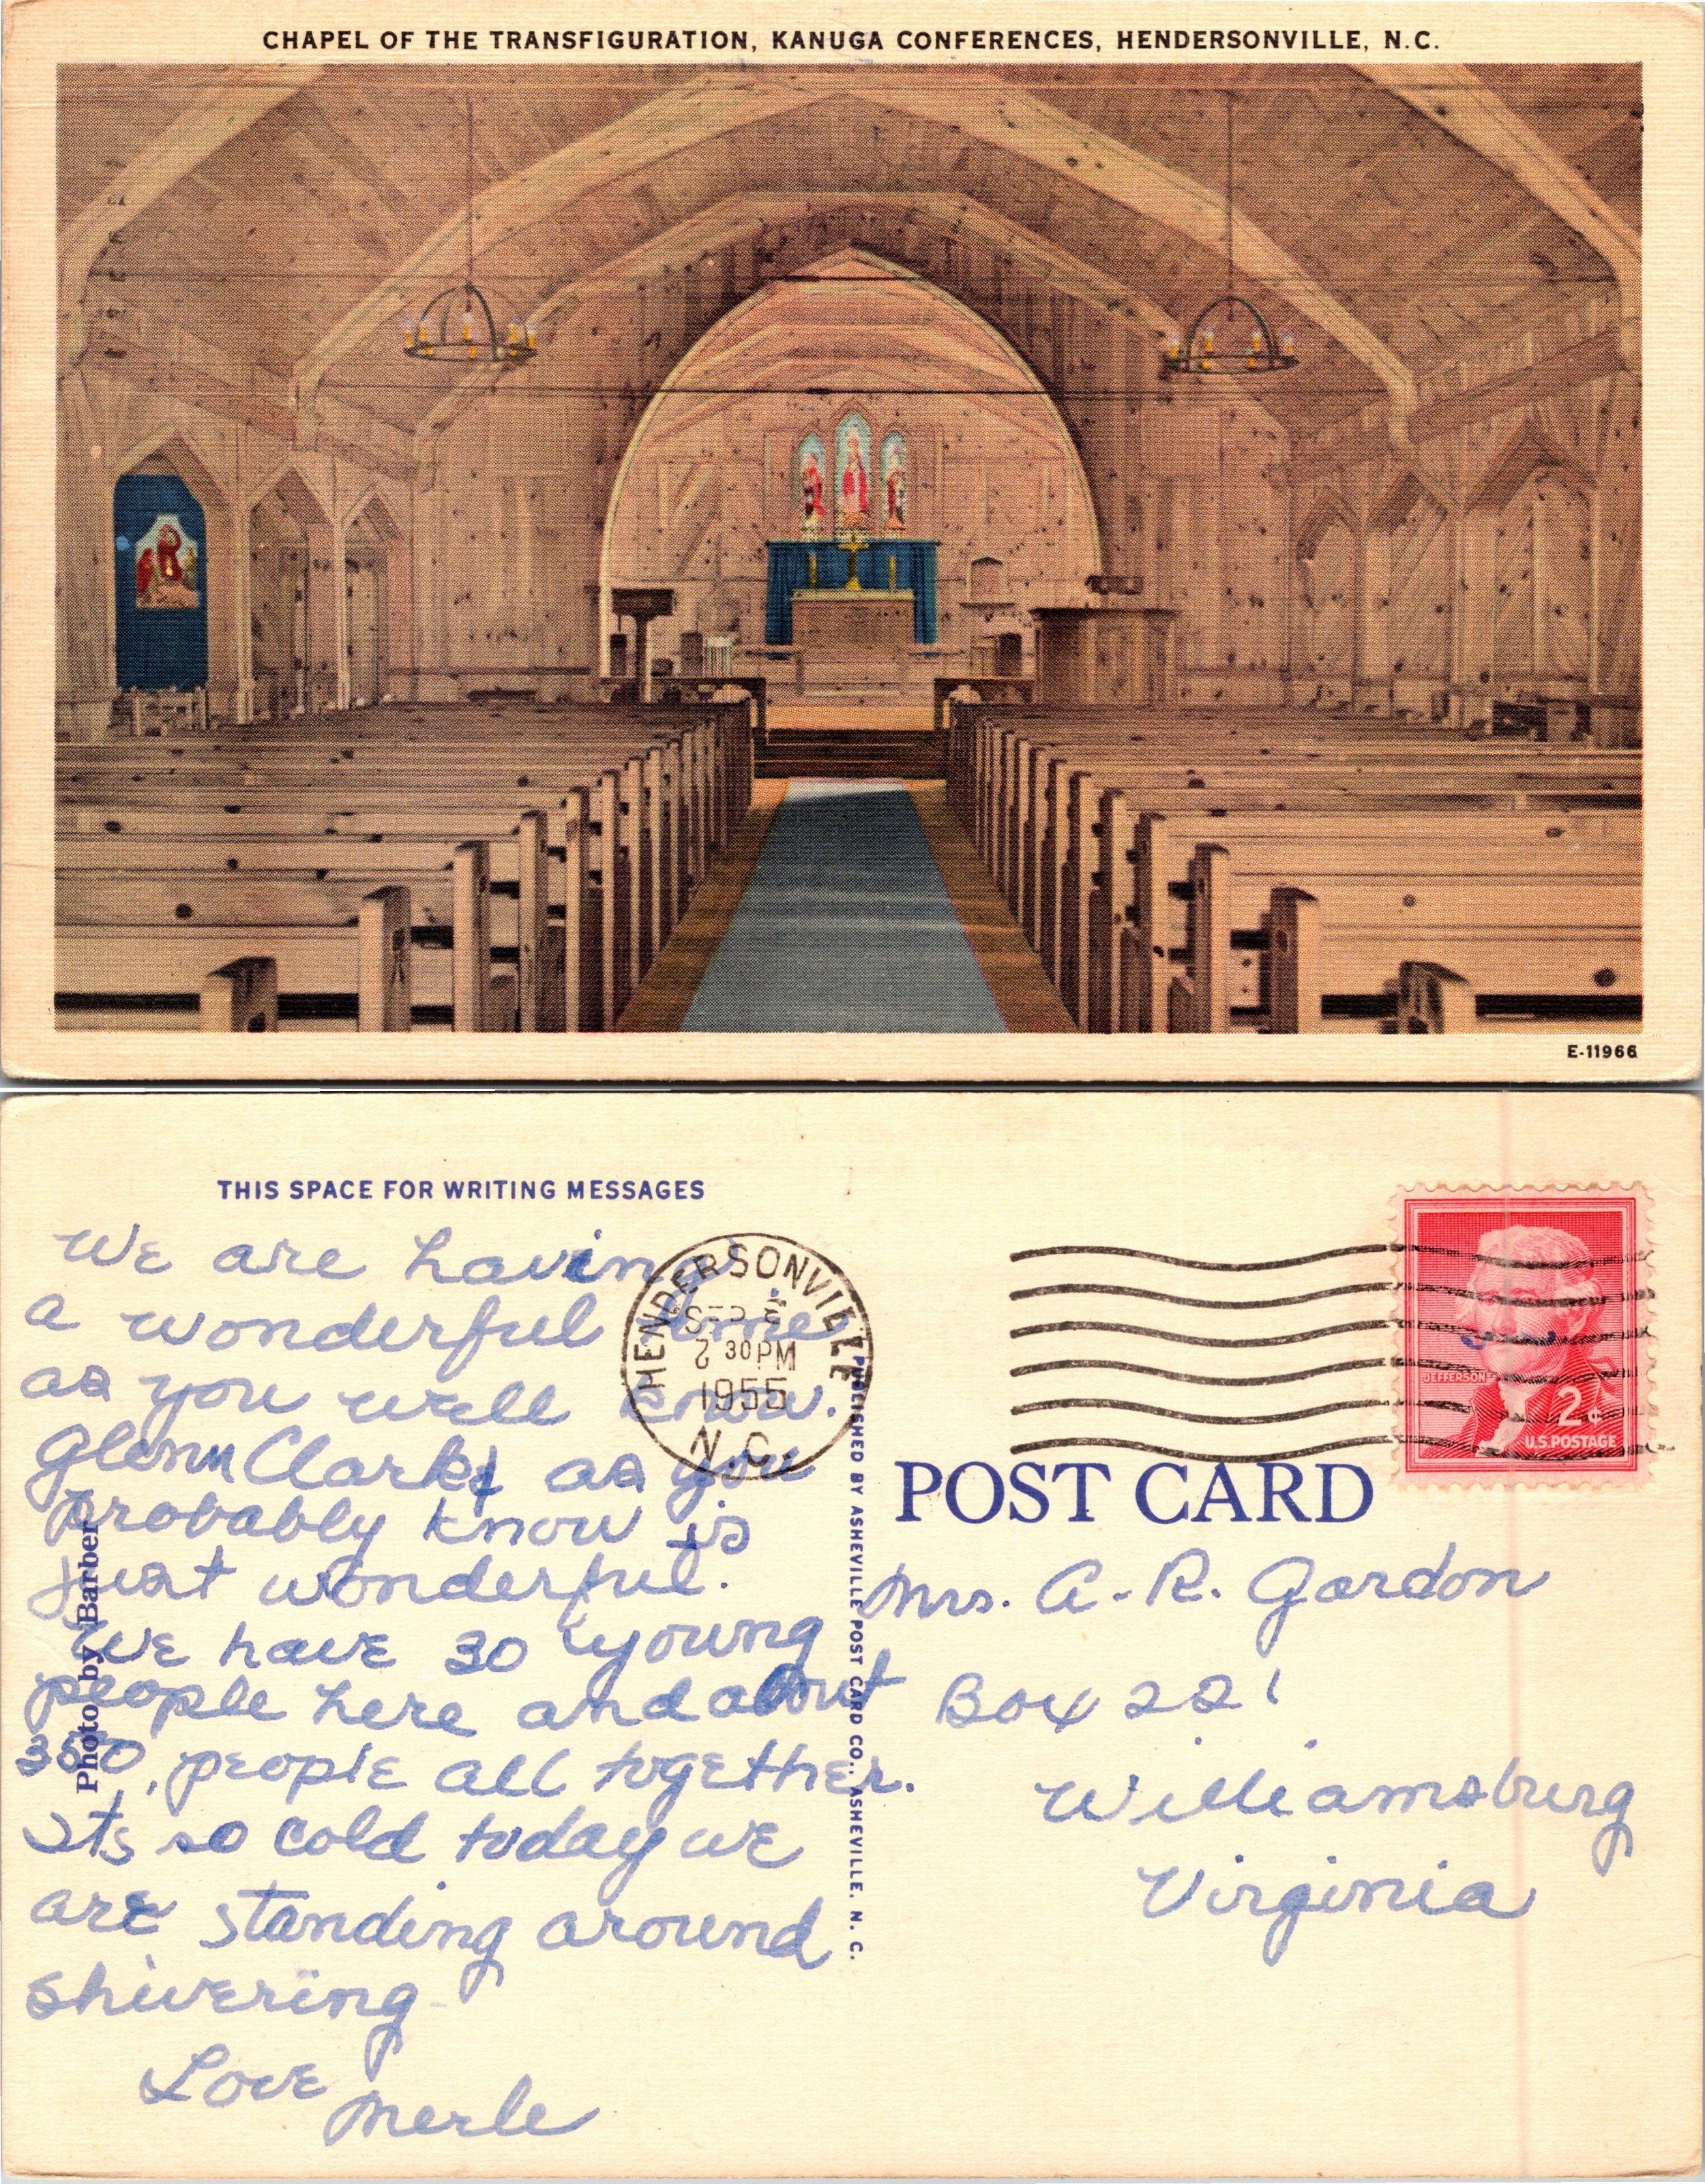 CHAPEL OF THE TRANSFIGURATION, KANUGA CONFERENCES, HENDERSONVILLE, N.C.
E-11966
THIS SPACE FOR WRITING MESSAGES
We are having
a wonderful time
as you well know.
Glenn Clark, as you
probably know is
just wonderful.
We have 30 young
people here and about
350 people all together.
Its so cold today we
are standing around
shivering
Love
Merle
Photo by Barber
HENDERSONVILLE
SEP 5
2 30 PM
1955
N.C.
PUBLISHED BY ASHEVILLE POST CARD CO., ASHEVILLE, N. C.
JEFFERSON
2¢
U.S. POSTAGE
POST CARD
Mrs. A. R. Gordon
Box 221
Williamsburg
Virginia